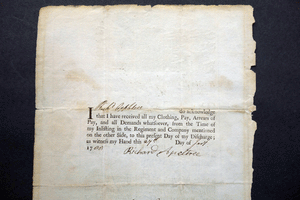 I Rich^d do acknowledge
that I have received all my Clothing, Pay, Arrears of
Pay, and all Demands whatsoever, from the Time of
my Inlisting in the Regiment and Company mentioned
on the other Side, to this present Day of my Discharge;
as witness my Hand this Day of July
17
Richard